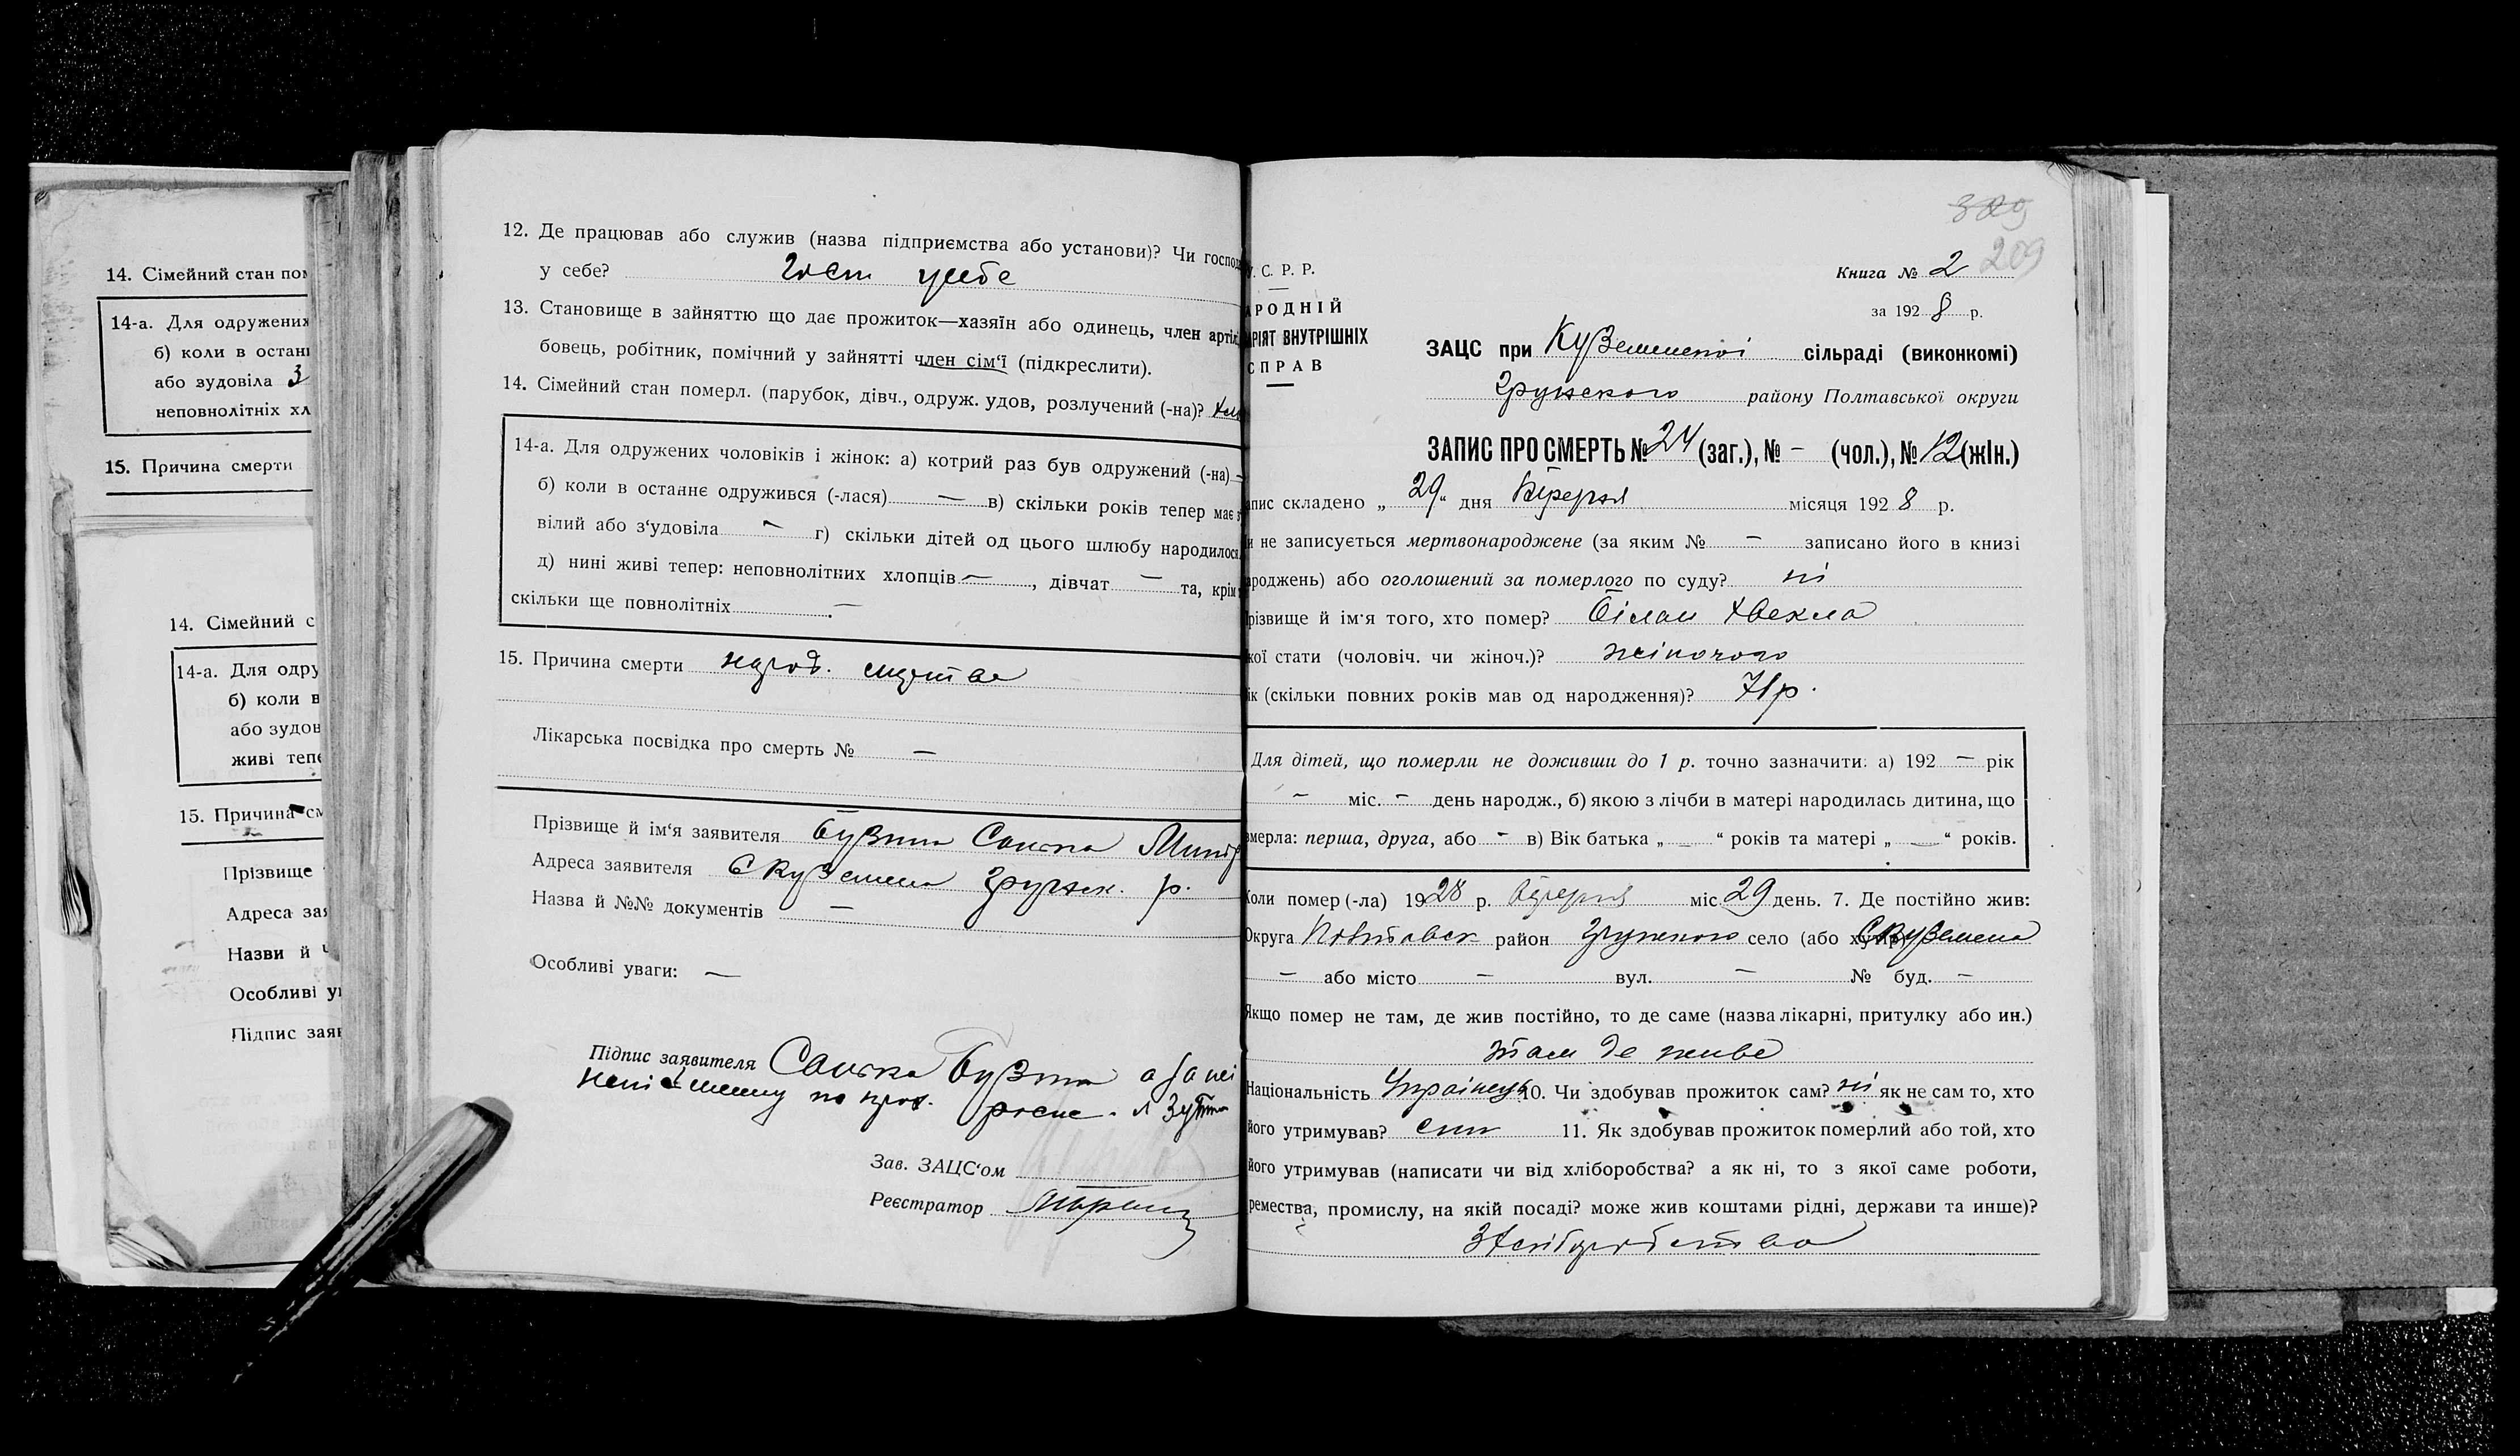 14. Сімейний стан пом
14-а. Для одружених
б) коли в останн
або зудовіла З
неповнолітніх хл
15. Причина смерти
14. Сімейний с
14-а. Для одру
б) коли в
або зудов
живі тепе
15. Причина см
Прізвище
Адреса зая
Назви й ч
Особливі ув
Підпис заяв
12. Де працював або служив (назва підприємства або установи)? Чи господ
у себе? Госп у себе
13. Становище в зайняттю що дає прожиток—хазяїн або одинець, член артіл
бовець, робітник, помічний у зайнятті член сім'ї (підкреслити).
14. Сімейний стан померл. (парубок, дівч., одруж. удов, розлучений (-на)?
14-а. Для одружених чоловіків і жінок: а) котрий раз був одружений (-на) —
б) коли в останнє одружився (-лася) — в) скільки років тепер має з
вілий або з'удовіла — г) скільки дітей од цього шлюбу народилося
д) нині живі тепер: неповнолітних хлопців —, дівчат — та, крім
скільки ще повнолітніх — .
15. Причина смерти
Лікарська посвідка про смерть № —
Прізвище й ім'я заявителя Бузин
Адреса заявителя С Куземена Грунськ. р.
Назва й №№ документів —
Особливі уваги: —
Підпис заявителя Бузин а за неї
Зав. ЗАЦС'ом
Реєстратор
389
209
У. С. Р. Р.
АРОДНІЙ
АРІЯТ ВНУТРІШНІХ
СПРАВ
Книга № 2
за 1928 р.
ЗАЦС при Куземенськой сільраді (виконкомі)
Грунського району Полтавської округи
ЗАПИС ПРО СМЕРТЬ № 24 (заг.), № — (чол.), № 12 (жін.)
апис складено „29" дня Вересня місяця 1928 р.
и не записується мертвонароджене (за яким № — записано його в книзі
ароджень) або оголошений за померлого по суду? ні
різвище й ім'я того, хто помер? Білан Хвекла
кої стати (чоловіч. чи жіноч.)? жіночого
ік (скільки повних років мав од народження)? 71 р.
Для дітей, що померли не доживши до 1 р. точно зазначити: а) 192 — рік
— міс. — день народж., б) якою з лічби в матері народилась дитина, що
вмерла: перша, друга, або — в) Вік батька „ — " років та матері „ — " років.
Коли помер (-ла) 1928 р. Вересня міс 29 день. 7. Де постійно жив:
Округа Полтавськ район Грунського село (або хутір) С Куземена
— або місто — вул. — № буд. —
Якщо помер не там, де жив постійно, то де саме (назва лікарні, притулку або ин.)
там де живе
Національність Українець 10. Чи здобував прожиток сам? ні як не сам то, хто
його утримував? син 11. Як здобував прожиток померлий або той, хто
його утримував (написати чи від хліборобства? а як ні, то з якої саме роботи,
ремества, промислу, на якій посаді? може жив коштами рідні, держави та инше)?
З Хліборобства